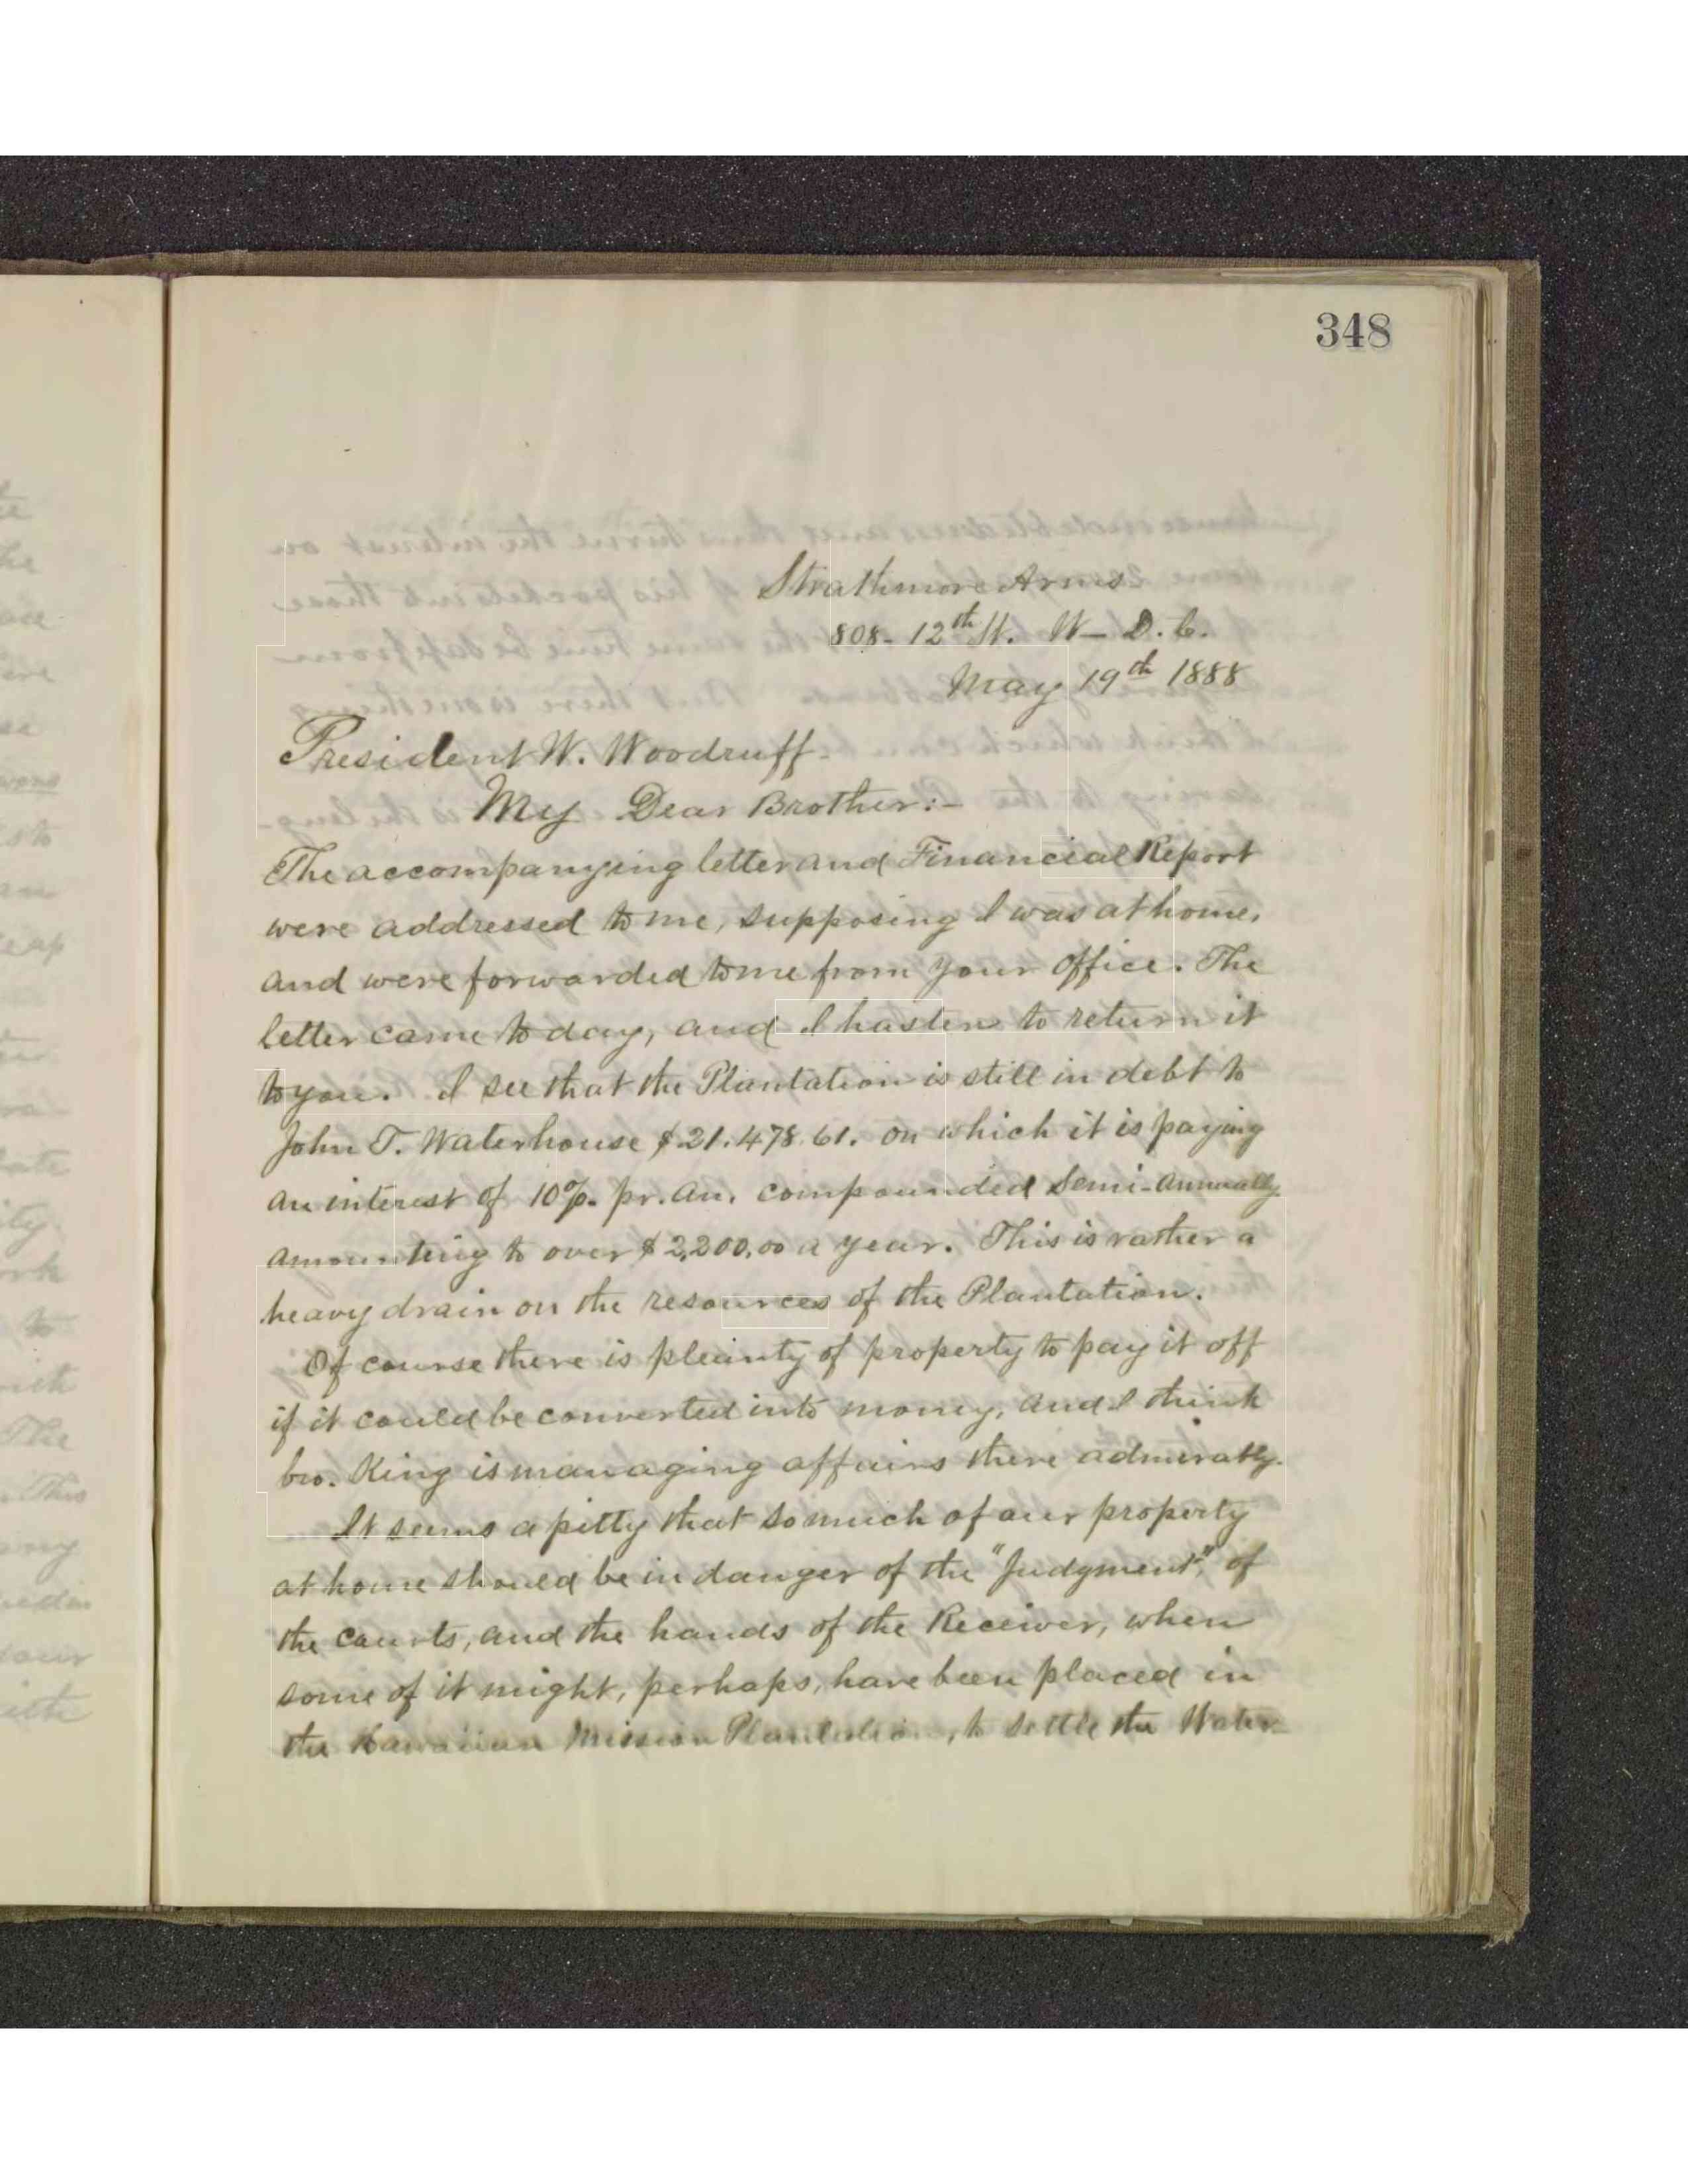 348
Strathmore Arms
808- 12th St. W— D.C.
May 19th 1888
President W. Woodruff-
My Dear Brother:-
The accompanying letter and Financial Report
were addressed to me, supposing I was at home,
and were forwarded to me from your office. The
letter came to day, and I hasten to return it
to you. I see that the Plantation is still in debt to
John T. Waterhouse $21.478.61. on which it is paying
an interest of 10%. pr. an. compounded semi-annually
amounting to over $2,200.00 a year. This is rather a
heavy drain on the resources of the Plantation.
Of course there is pleanty of property to pay it off
if it could be converted into money, and I think
bro. King is managing affairs there admirably.
It seems a pitty that so much of our property
at home should be in danger of the "Judgment," of
the courts, and the hands of the Receiver, when
some of it might, perhaps, have been placed in
the Hawaiian Mission Plantation, to settle the Water-